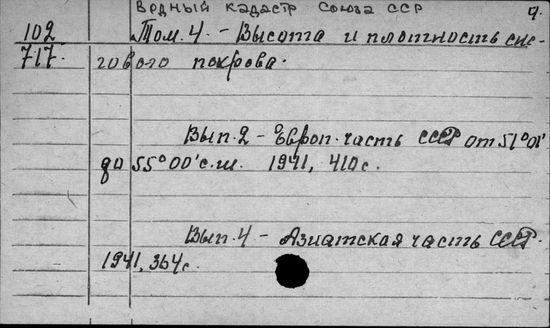 Водный кадастр Союза ССР 9.
102 Том. 4. - Высота и плотность сне-
717. гового покрова.
Вып. 2 - Европ. часть СССР от 51°01'
до 55°00' с.ш. 1941, 410 с.
Вып. 4 - Азиатская часть СССР.
1941, 364 с.